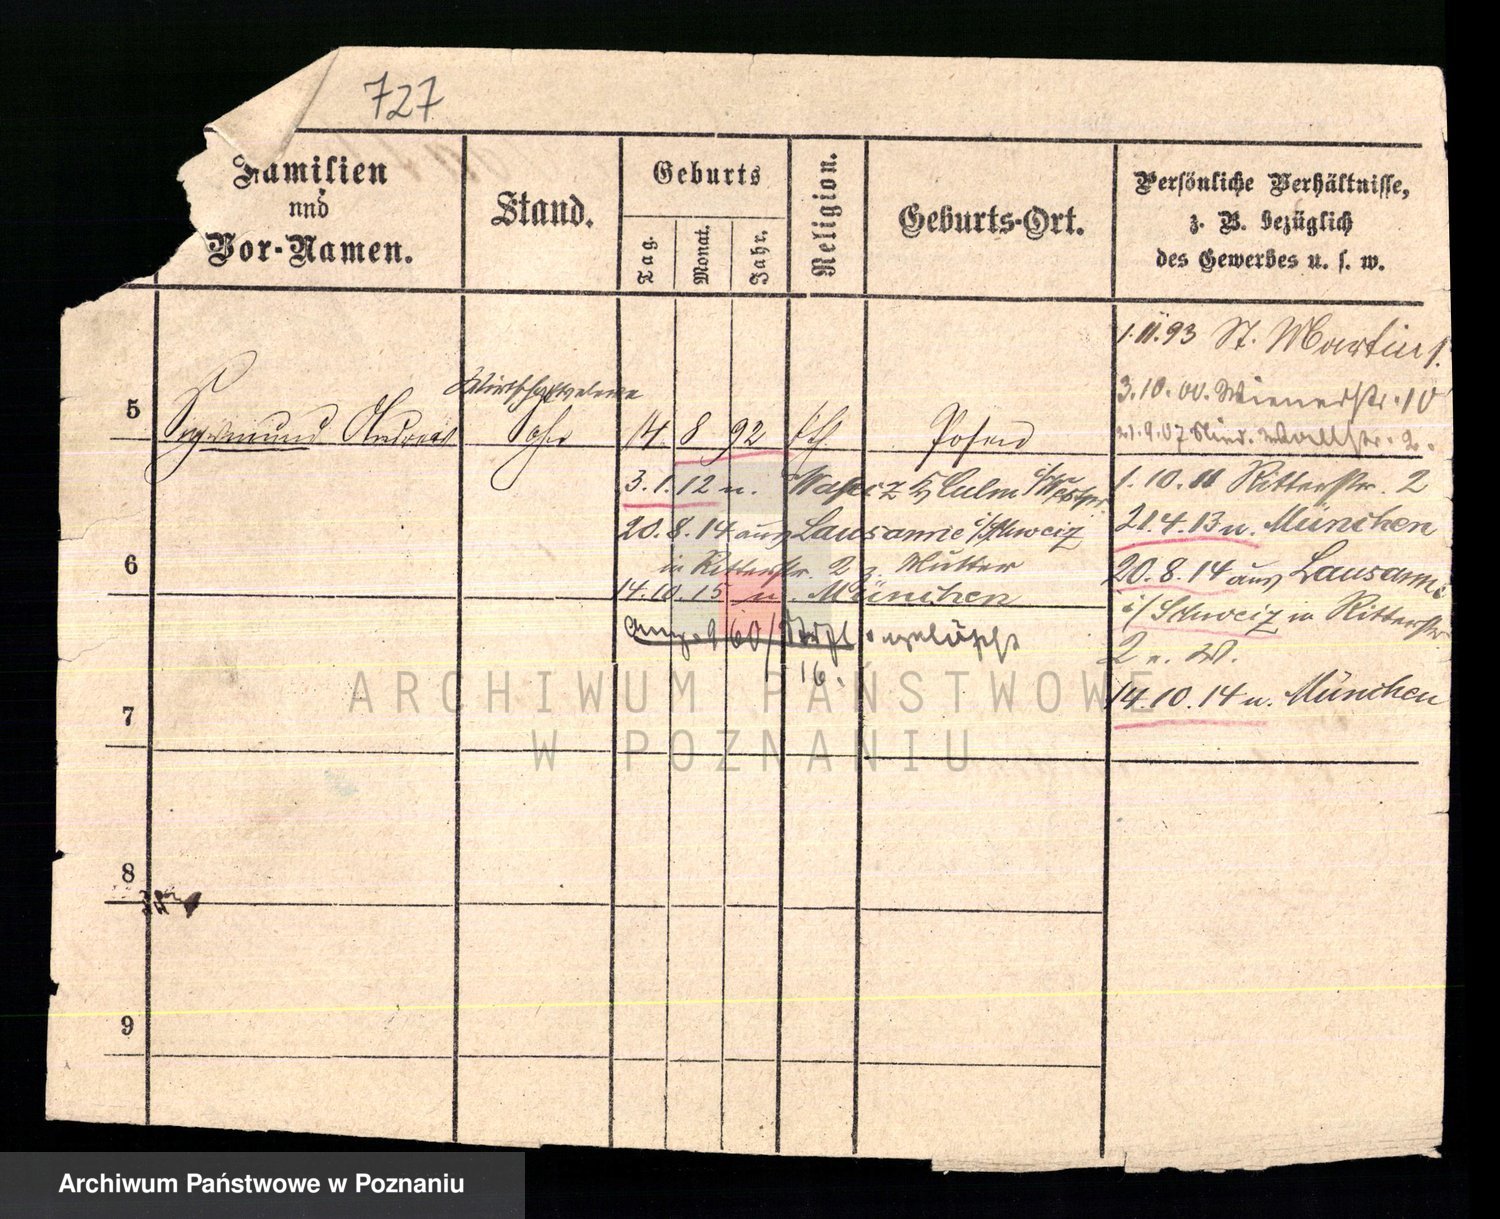 727
Familien
und
Vor-Namen.
Stand.
Geburts
Tag.
Monat.
Jahr.
Religion.
Geburts-Ort.
Persönliche Verhältnisse,
z. B. bezüglich
des Gewerbes u. s. w.
1.11.93 St. Martin
3.10.00. Wienerstr. 10
21.9.07 Wallstr. 2.
5 Sigismund Andreas Sohn 14 8 92 kth. Posen
3.1.12 n. Culm i/Westpr.
1.10.11 Ritterstr. 2
20.8.14 aus Lausanne i/Schweiz
21.4.13 n. München
in Ritterstr. 2 z. Mutter
6
20.8.14 aus Lausanne
14.10.15 n. München
i/Schweiz in Ritterstr.
2 n. W.
16.
14.10.14 n. München
7
8
9
ARCHIWUM PAŃSTWOWE
W POZNANIU
Archiwum Państwowe w Poznaniu